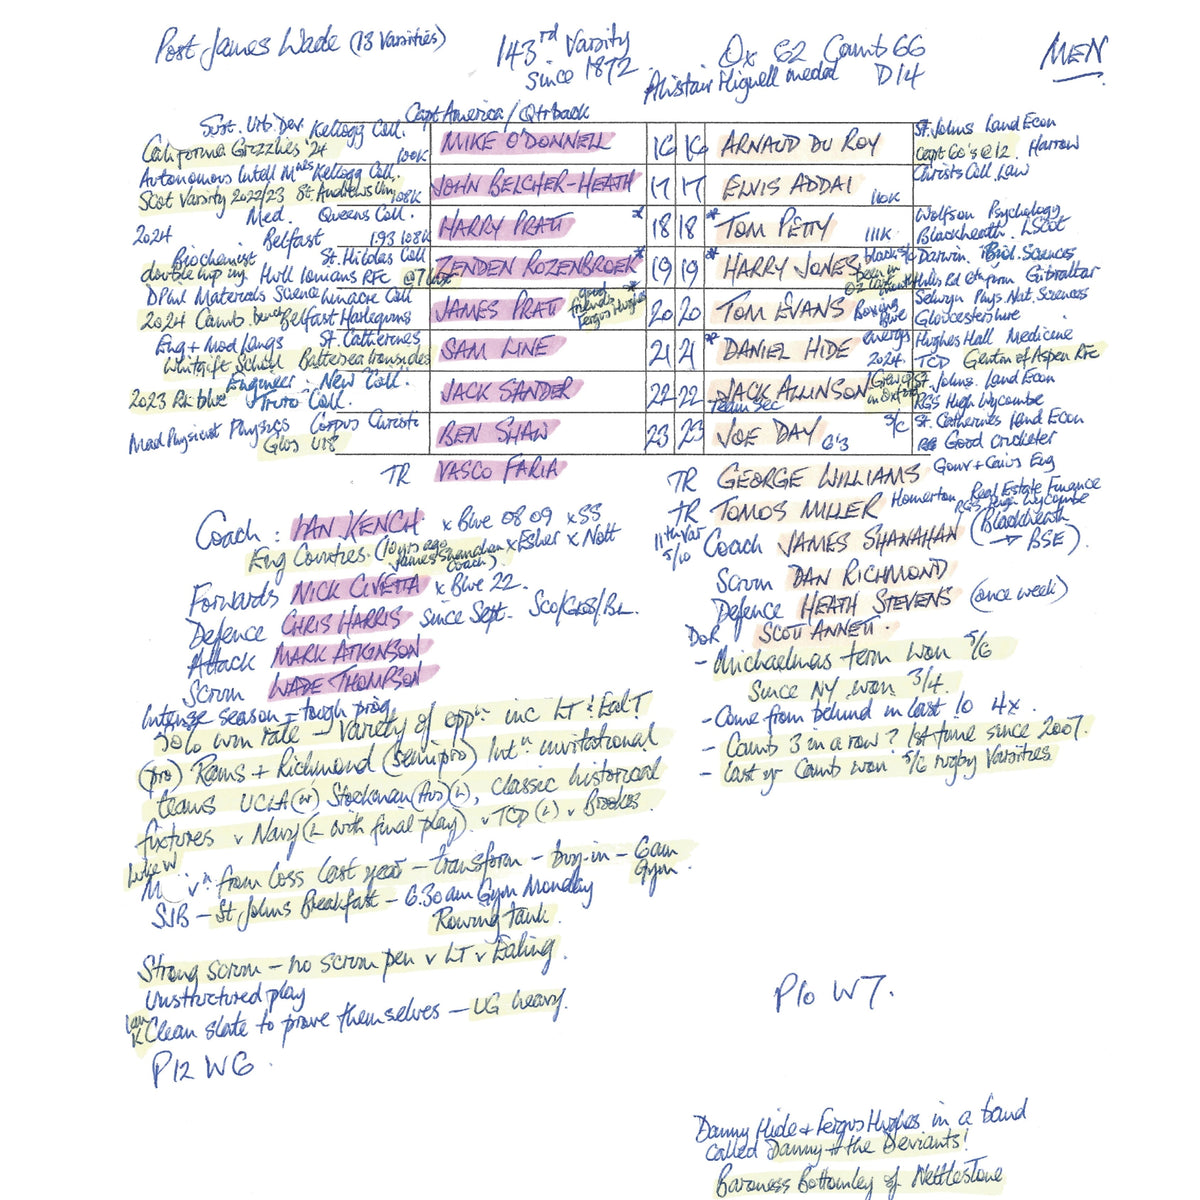 Post James Wade (13 Varsities)
143rd Varsity
since 1872
Ox 62 Camb 66
Alistair Hignell medal D14
MEN
Capt America / Qtrback
Sust. Urb. Dev. Kellogg Coll.
California Grizzlies '24 100K
MIKE O'DONNELL 16 16 ARNAUD DU ROY
St. Johns Land Econ
Capt Co's @ 12. Harrow
Autonomous Intell Mnes Kellogg Coll.
Scot Varsity 2022/23 St. Andrews Uni 108K
JOHN BELCHER-HEATH 17 17 ELVIS ADDAI 110K
Christs Coll. Law
Med. Queens Coll.
2024 Belfast 1.93 108K
HARRY PRATT * 18 18 * TOM PETTY 111K
Wolfson Psychology
Blackheath. LScot
Biochemist St. Hildas Coll
Hull Ionians RFC @7 last
ZENDEN ROZENBROEK * 19 19 * HARRY JONES
Darwin. Biol. Sciences
Gibraltar
DPhil Materials Science Linacre Coll
2024 Camb. bench Belfast Harlequins
JAMES PRATT good friends Fergus Hughes * 20 20 TOM EVANS Rowing Blue
Selwyn Phys. Nat. Sciences
Gloucestershire
Eng + Mod Langs St. Catherines
Whitgift School Battersea Ironsides
SAM LINE 21 21 * DANIEL HIDE energy 2024.
Hughes Hall Medicine
TCD Gentn of Aspen RFC
Engineer - New Coll.
2023 Rk blue Truro Coll.
JACK SANDER 22 22 JACK ALLINSON Grew up in Oxford
Team Sec
St. Johns. Land Econ
RGS High Wycombe
Mad Physicist Physics Corpus Christi
Glos U18
BEN SHAW 23 23 JOE DAY 6'3 S/C
St. Catherines Land Econ
Good cricketer
TR VASCO FARIA
TR GEORGE WILLIAMS Gonv + Caius Eng
TR TOMOS MILLER Homerton Real Estate Finance
RGS High Wycombe
Coach : IAN KENCH x Blue 08 09 x SS
Eng Counties (10 yrs ago James Shanahan coach) x Esher x Nott
11th Var 5/10 Coach JAMES SHANAHAN (Blackheath → BSE).
Forwards NICK CIVETTA x Blue 22.
Scrum DAN RICHMOND
Defence CHRIS HARRIS since Sept. Sco/Glos/BL
Defence HEATH STEVENS (once week)
Attack MARK ATKINSON
DoR SCOTT ANNETT.
Scrum WADE THOMPSON
- Michaelmas term won 5/6
Since NY won 3/4.
- Come from behind in last 10 4x.
- Camb 3 in a row? 1st time since 2007.
- last yr Camb won 5/6 rugby Varsities
Intense season - tough prog
50% win rate - Variety of oppn inc LT & EalT
(pro) Rams + Richmond (semipro) Intn invitational
teams UCLA (W) Stockman (Aus) (L), classic historical
fixtures v Navy (L with final play) v TCD (L) v Brookes.
Luke W
from loss last year - transform - buy-in - 6am
Gym.
SJB - St Johns Breakfast - 6.30am Gym Monday
Rowing tank.
Strong scrum - no scrum pen v LT v Ealing.
Unstructured play
Ian K Clean slate to prove themselves - UG heavy.
P12 W6.
P10 W7.
Danny Hide + Fergus Hughes in a band
called Danny + the Deviants!
Baroness Bottomley of Nettlestone